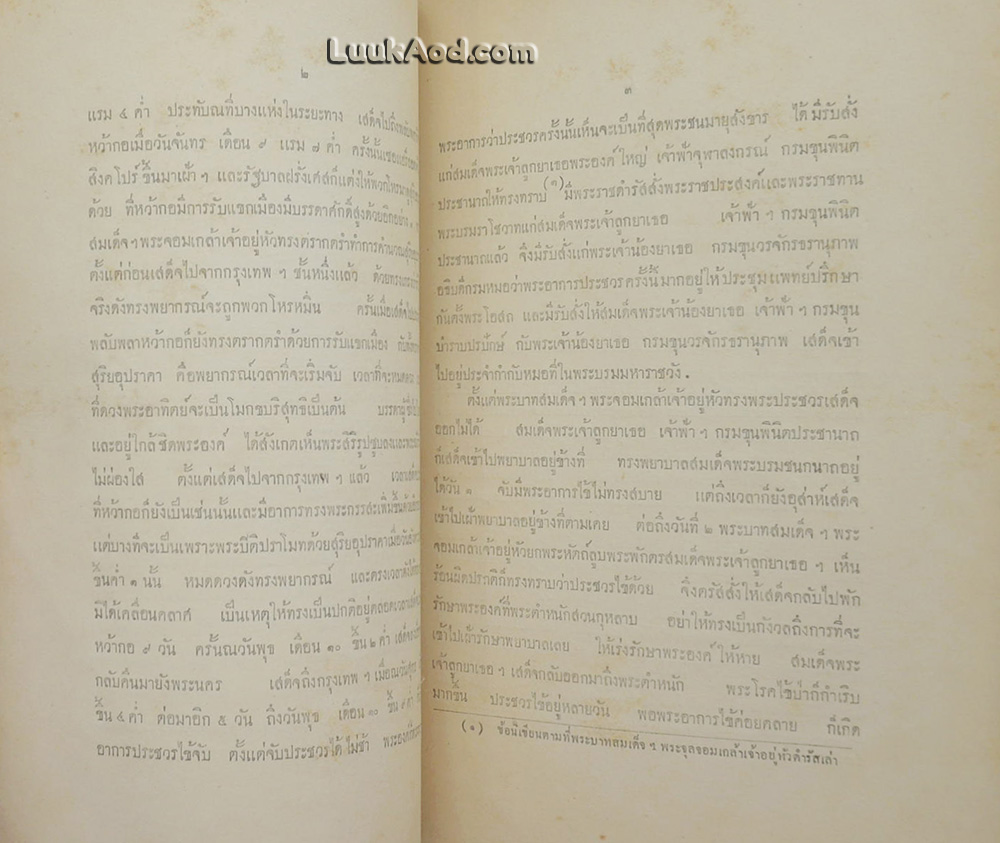 LuukAod.com
๒
แรม ๔ ค่ำ ประทับณที่บางแห่งในระยะทาง
หว้ากอเมื่อวันจันทร เดือน ๙ แรม ๗ ค่ำ ครั้งนั้น
สิงคโปร์ขึ้นมาเฝ้าฯ และรัฐบาลฝรั่งเศสก็แต่งให้พวกโหร
ด้วย ที่หว้ากอมีการรับแขกเมืองมีบรรดาศักดิ์สูงด้วยอีกอย่าง ๑
สมเด็จฯพระจอมเกล้าเจ้าอยู่หัวทรงตรากตรำทำการคำนวณ
ตั้งแต่ก่อนเสด็จไปจากกรุงเทพฯชั้นหนึ่งแล้ว
จริงดังทรงพยากรณ์จะถูกพวกโหรหมิ่น ครั้นเมื่อเสด็จ
พลับพลาหว้ากอก็ยังทรงตรากตรำด้วยการรับแขกเมือง
สุริยอุปราคา คือพยากรณ์เวลาที่จะเริ่มจับ เวลาที่จะหมดดวง
ที่ดวงพระอาทิตย์จะเป็นโมกขบริสุทธิเป็นต้น บรรดาผู้
และอยู่ใกล้ชิดพระองค์ ได้สังเกตเห็นพระสิริรูปซูบลงและ
ไม่ผ่องใส ตั้งแต่เสด็จไปจากกรุงเทพฯแล้ว
ที่หว้ากอก็ยังเป็นเช่นนั้นและมีอาการทรงพระกรรสะเพิ่มขึ้นด้วย
แต่บางทีจะเป็นเพราะพระปีติปราโมทด้วยสุริยอุปราคาเมื่อวัน
ขึ้นค่ำ ๑ นั้น หมดดวงดังทรงพยากรณ์ และตรงเวลา
มิได้เคลื่อนคลาศ เป็นเหตุให้ทรงเป็นปกติอยู่ตลอดเวลา
หว้ากอ ๙ วัน ครั้นณวันพุธ เดือน ๑๐ ขึ้น ๒ ค่ำ
กลับคืนมายังพระนคร เสด็จถึงกรุงเทพฯเมื่อณวันศุกร
ขึ้น ๔ ค่ำ ต่อมาอีก ๕ วัน ถึงวันพุธ เดือน ๑๐ ขึ้น ๙ ค่ำ
อาการประชวรไข้จับ ตั้งแต่จับประชวรได้ไม่ช้า
๓
พระอาการว่าประชวรครั้งนั้นเห็นจะเป็นที่สุดพระชนมายุสังขาร ได้มีรับสั่ง
แก่สมเด็จพระเจ้าลูกยาเธอพระองค์ใหญ่ เจ้าฟ้าจุฬาลงกรณ์ กรมขุนพินิต
ประชานาถให้ทรงทราบ(๑)มีพระราชดำรัสสั่งพระราชประสงค์และพระราชทาน
พระบรมราโชวาทแก่สมเด็จพระเจ้าลูกยาเธอ เจ้าฟ้าฯกรมขุนพินิต
ประชานาถแล้ว จึงมีรับสั่งแก่พระเจ้าน้องยาเธอ กรมขุนวรจักรธรานุภาพ
อธิบดีกรมหมอว่าพระอาการประชวรครั้งนี้มากอยู่ให้ประชุมแพทย์ปรึกษา
กันตั้งพระโอสถ และมีรับสั่งให้สมเด็จพระเจ้าน้องยาเธอ เจ้าฟ้าฯกรมขุน
บำราบปรปักษ์ กับพระเจ้าน้องยาเธอ กรมขุนวรจักรธรานุภาพ เสด็จเข้า
ไปอยู่ประจำกำกับหมอที่ในพระบรมมหาราชวัง.
ตั้งแต่พระบาทสมเด็จฯพระจอมเกล้าเจ้าอยู่หัวทรงพระประชวรเสด็จ
ออกไม่ได้ สมเด็จพระเจ้าลูกยาเธอ เจ้าฟ้าฯกรมขุนพินิตประชานาถ
ก็เสด็จเข้าไปพยาบาลอยู่ข้างที่ ทรงพยาบาลสมเด็จพระบรมชนกนาถอยู่
ได้วัน ๑ จับมีพระอาการไข้ไม่ทรงสบาย แต่ถึงเวลาก็ยังอุส่าห์เสด็จ
เข้าไปเฝ้าพยาบาลอยู่ข้างที่ตามเคย ต่อถึงวันที่ ๒ พระบาทสมเด็จฯพระ
จอมเกล้าเจ้าอยู่หัวยกพระหัตถ์ลูบพระพักตรสมเด็จพระเจ้าลูกยาเธอฯเห็น
ร้อนผิดปรกติก็ทรงทราบว่าประชวรไข้ด้วย จึงดรัสสั่งให้เสด็จกลับไปพัก
รักษาพระองค์ที่พระตำหนักสวนกุหลาบ อย่าให้ทรงเป็นกังวลถึงการที่จะ
เข้าไปเฝ้ารักษาพยาบาลเลย ให้เร่งรักษาพระองค์ให้หาย สมเด็จพระ
เจ้าลูกยาเธอฯเสด็จกลับออกมาถึงพระตำหนัก พระโรคไข้ป่าก็กำเริบ
มากขึ้น ประชวรไข้อยู่หลายวัน พอพระอาการไข้ค่อยคลาย ก็เกิด
(๑) ข้อนี้เขียนตามที่พระบาทสมเด็จฯพระจุลจอมเกล้าเจ้าอยู่หัวดำรัสเล่า